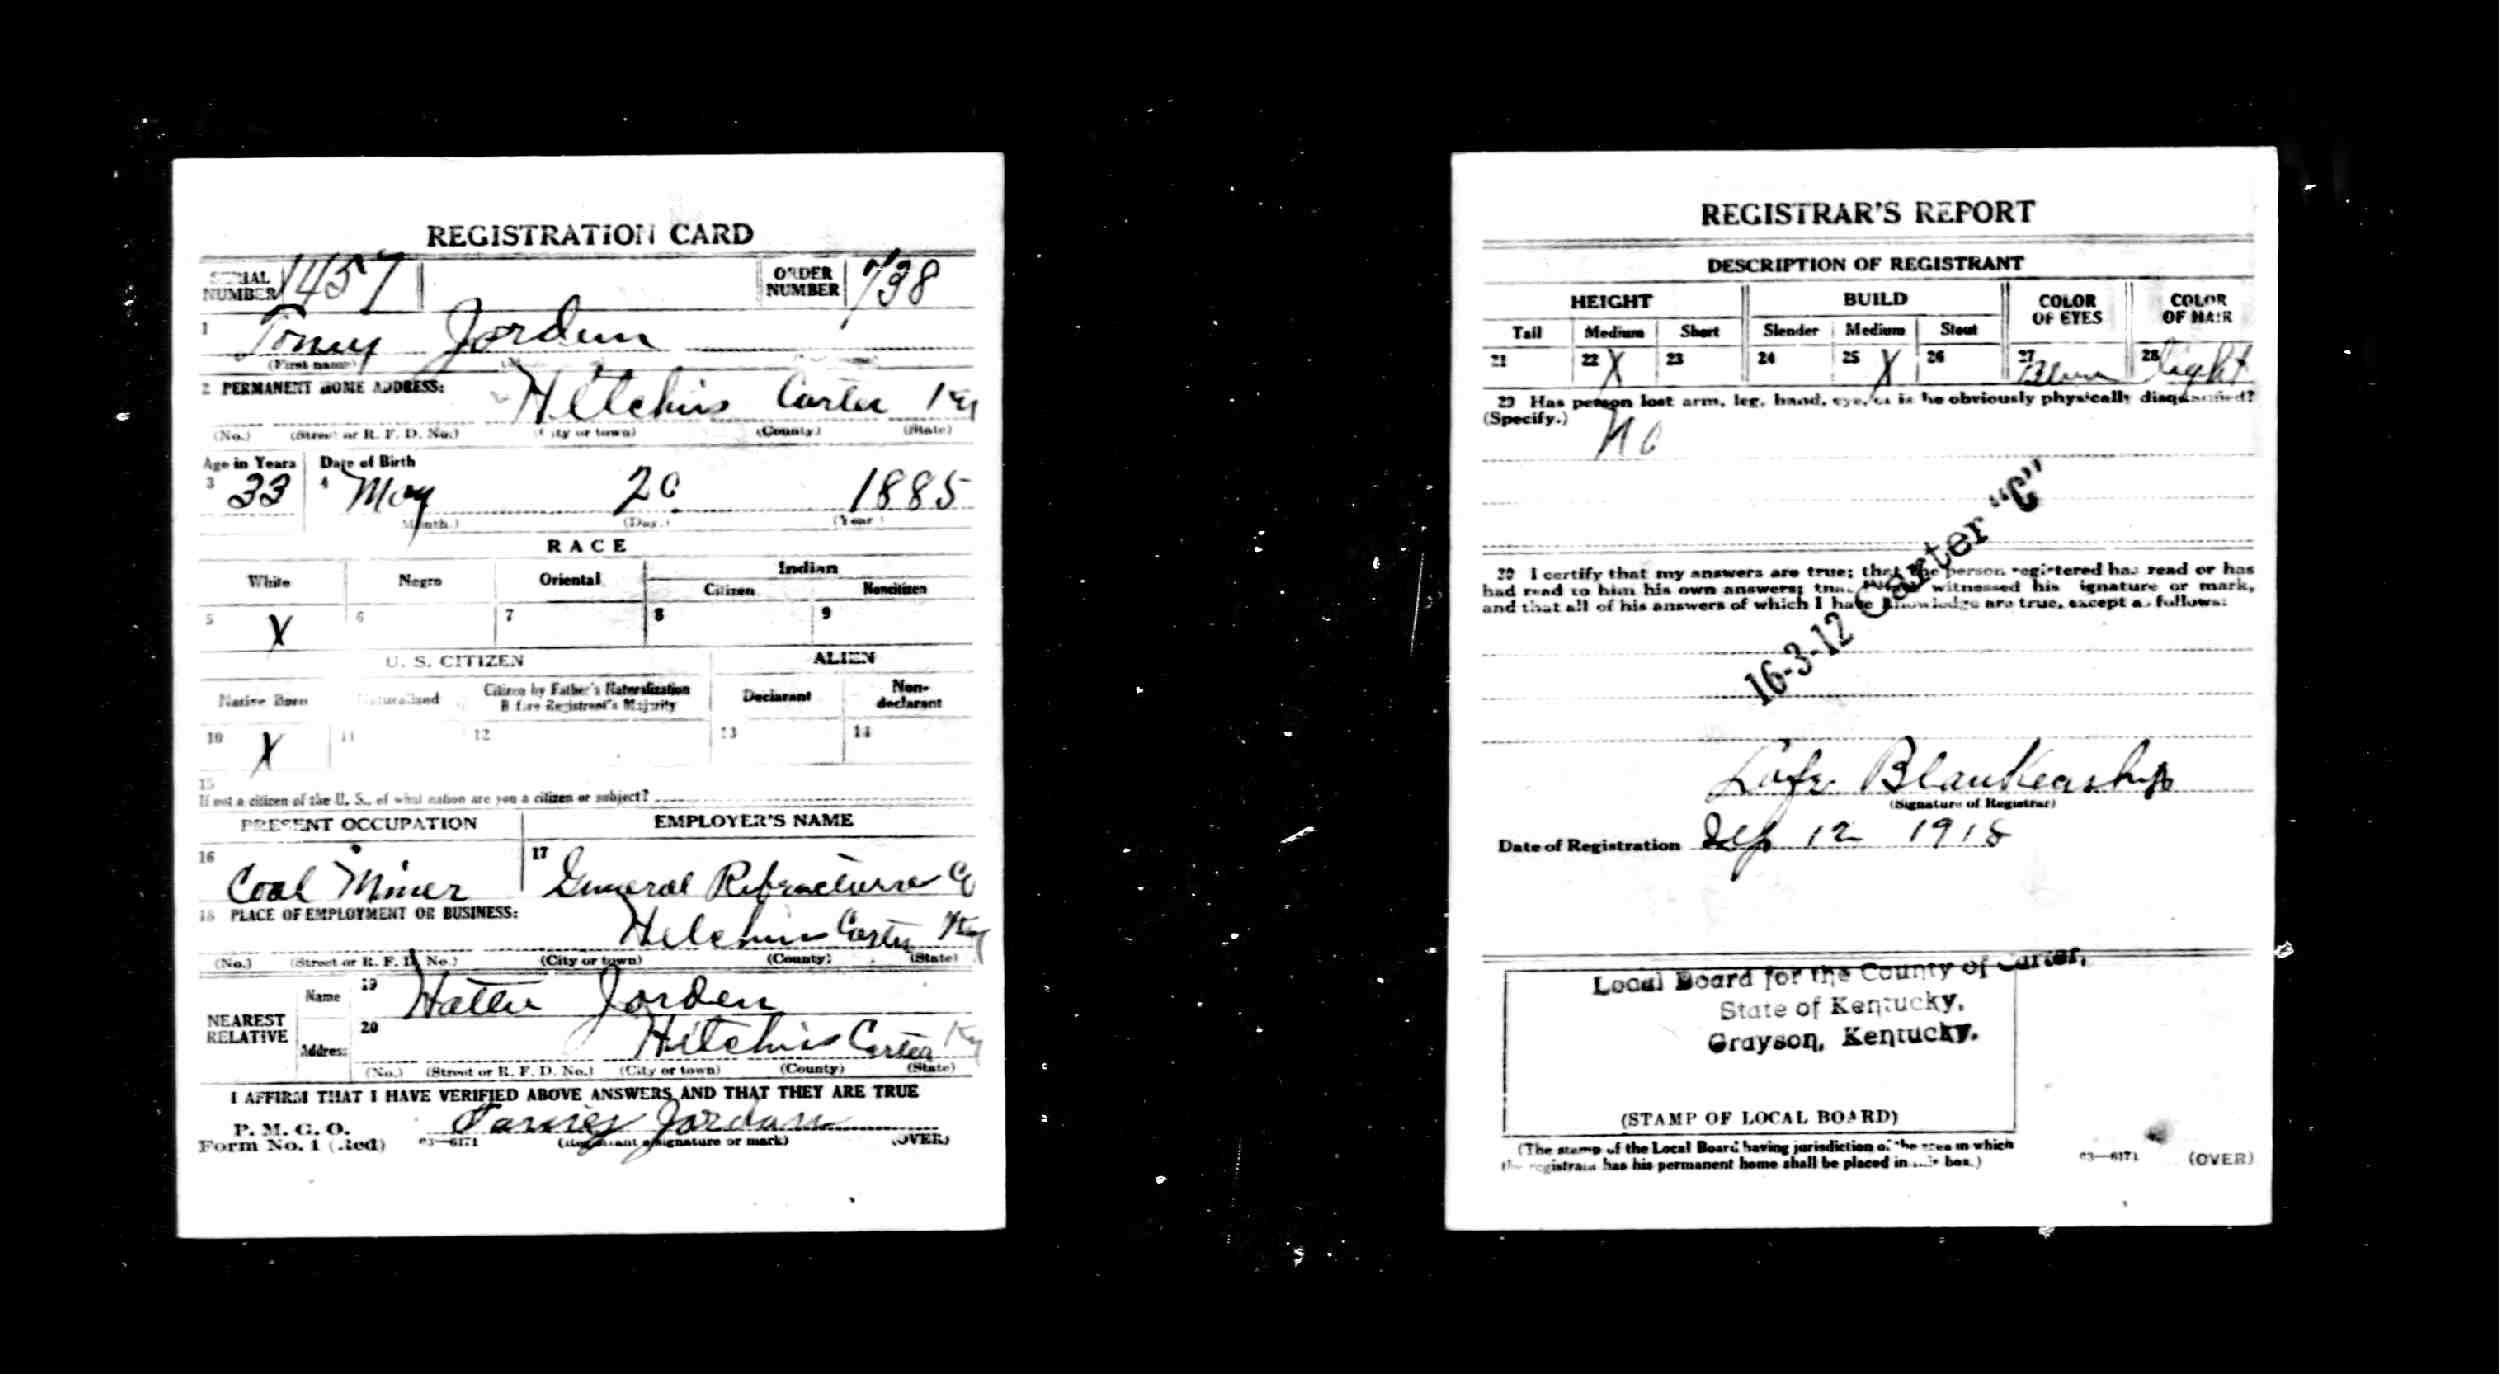 REGISTRATION CARD
SERIAL NUMBER 1457 ORDER NUMBER 738
1 Toney Jorden
(First name)
2 PERMANENT HOME ADDRESS: Hitchins Carter Ky
(No.) (Street or R. F. D. No.) (City or town) (County) (State)
Age in Years Date of Birth
3 33 4 May 20 1885
(Month.) (Day.) (Year)
RACE
White Negro Oriental Indian
Citizen Noncitizen
5 X 6 7 8 9
U. S. CITIZEN ALIEN
Native Born Naturalized Citizen by Father's Naturalization Before Registrant's Majority Declarant Non-declarant
10 X 11 12 13 14
15
If not a citizen of the U. S., of what nation are you a citizen or subject?
PRESENT OCCUPATION EMPLOYER'S NAME
16 Coal Miner 17 General Refractures Co
18 PLACE OF EMPLOYMENT OR BUSINESS:
Hitchins Carter Ky
(No.) (Street or R. F. D. No.) (City or town) (County) (State)
NEAREST RELATIVE Name 19 Hattie Jorden
Address 20 Hitchins Carter Ky
(No.) (Street or R. F. D. No.) (City or town) (County) (State)
I AFFIRM THAT I HAVE VERIFIED ABOVE ANSWERS AND THAT THEY ARE TRUE
P. M. G. O.
Form No. 1 (Red) 03—6171 Jordan (Registrant's signature or mark) (OVER)
REGISTRAR'S REPORT
DESCRIPTION OF REGISTRANT
HEIGHT BUILD COLOR OF EYES COLOR OF HAIR
Tall Medium Short Slender Medium Stout
21 22 X 23 24 25 X 26 27 Blue 28 light
29 Has person lost arm, leg, hand, eye, or is he obviously physically disqualified?
(Specify.) No
30 I certify that my answers are true; that the person registered has read or has
had read to him his own answers; that I have witnessed his signature or mark,
and that all of his answers of which I have knowledge are true, except as follows:
16-3-12 Carter "C"
Lafe Blankenship
(Signature of Registrar)
Date of Registration Sep 12 1918
Local Board for the County of Carter,
State of Kentucky,
Grayson, Kentucky.
(STAMP OF LOCAL BOARD)
(The stamp of the Local Board having jurisdiction of the area in which
the registrant has his permanent home shall be placed in this box.)
03—6171 (OVER)